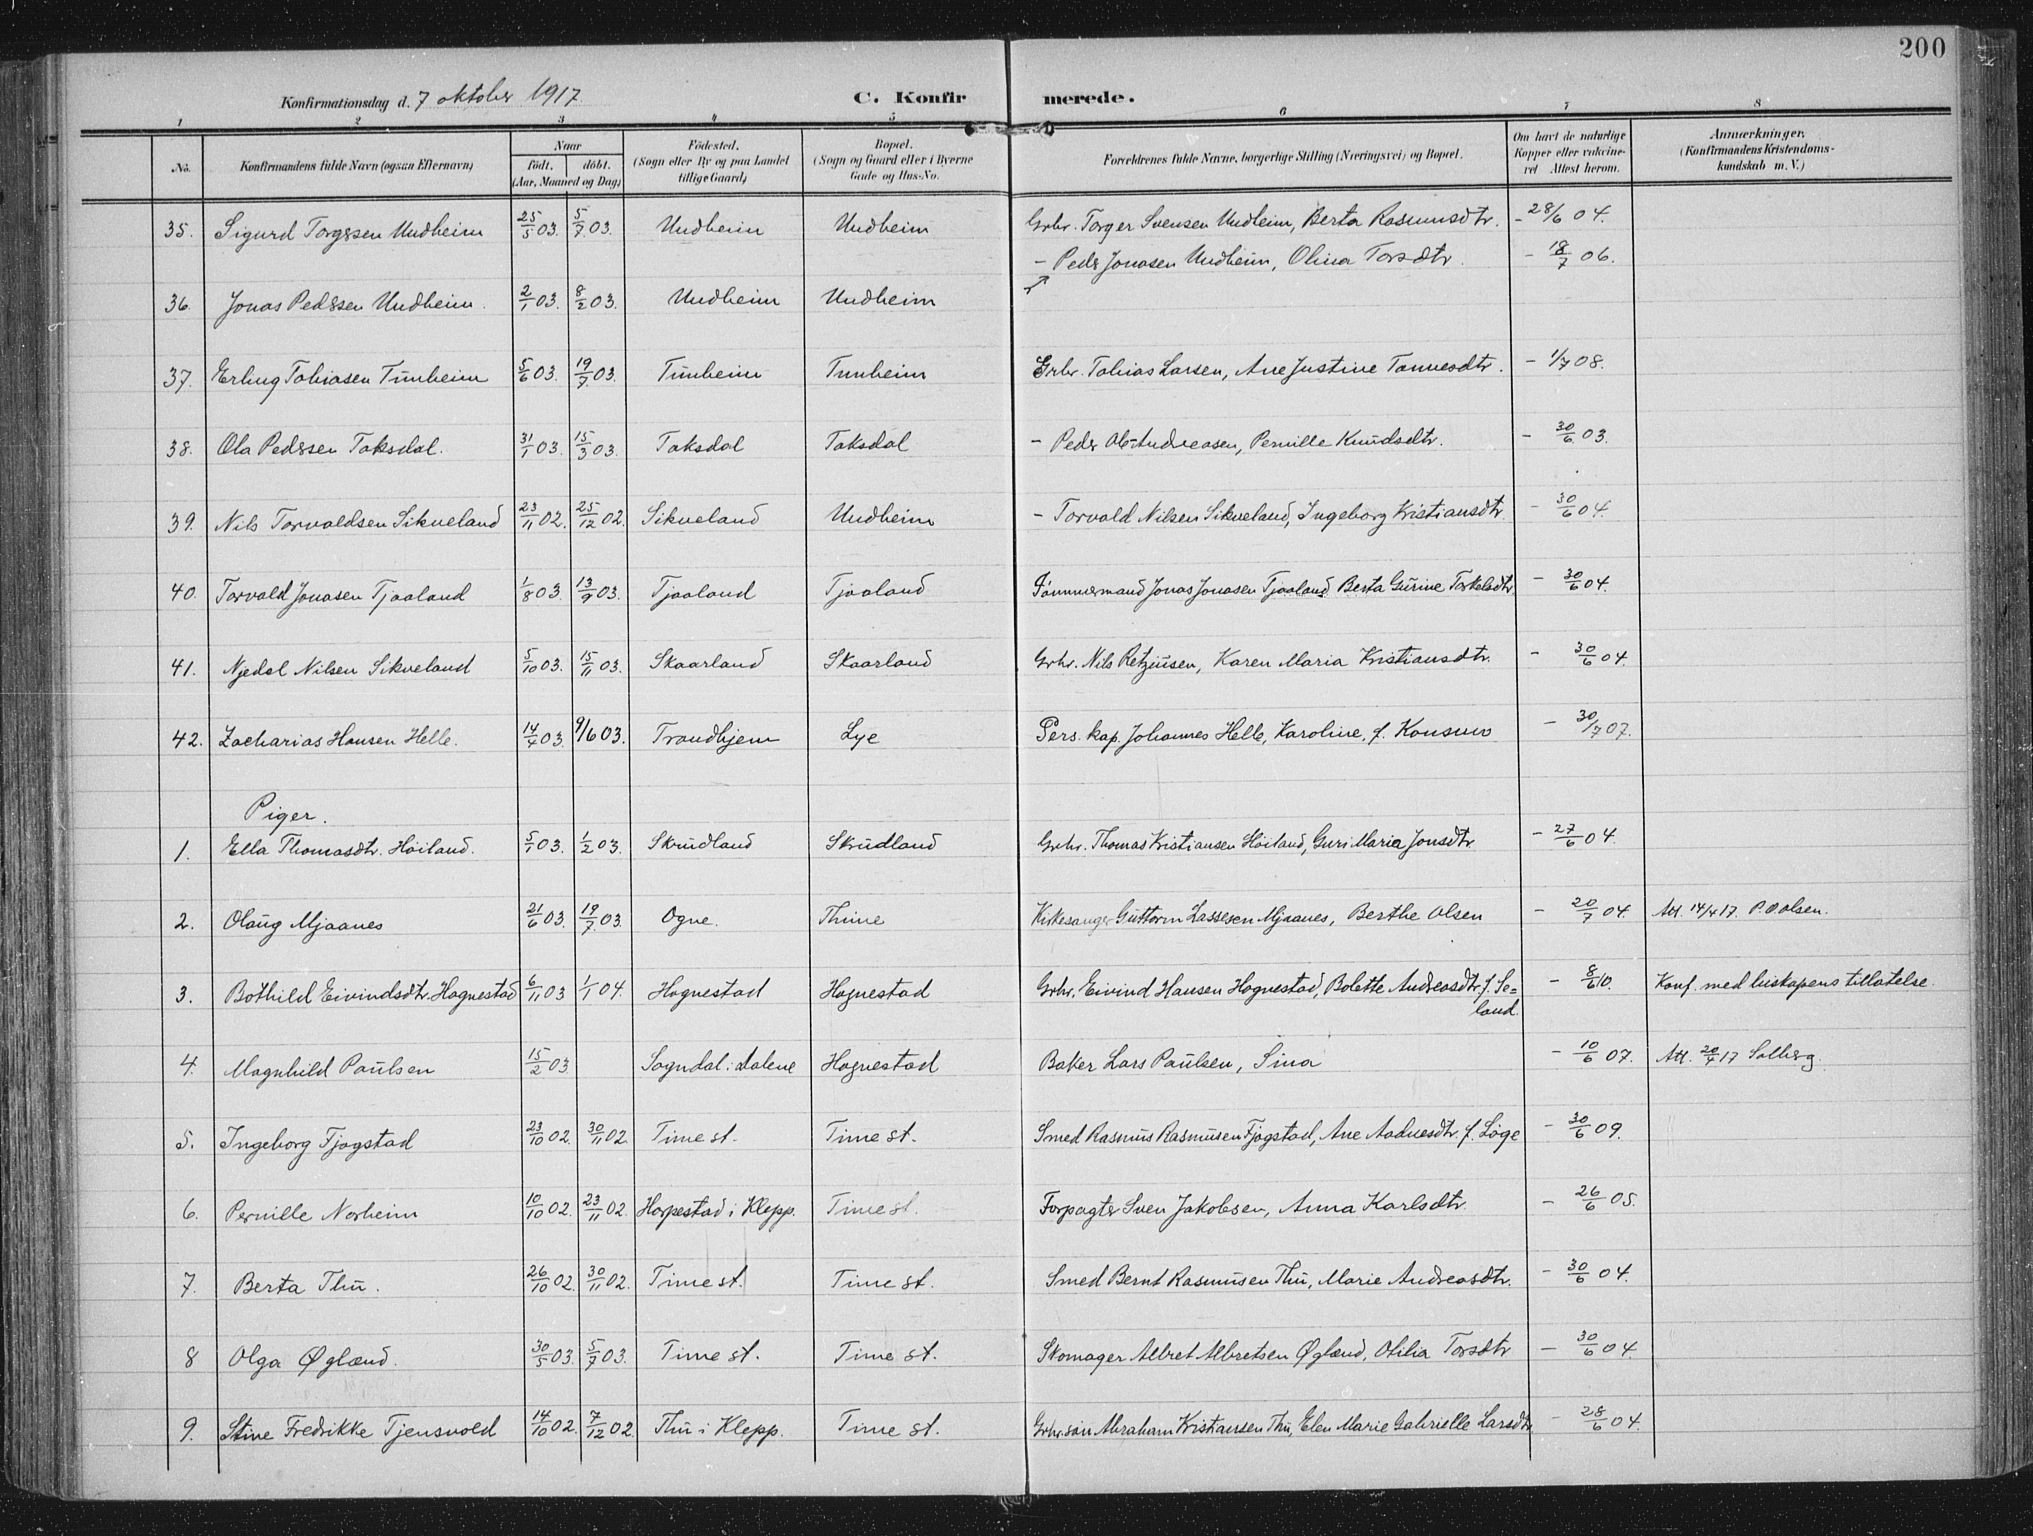 200
Konfirmationsdag d. 7 oktober 1917 C. Konfirmerede.
1 2 3 4 5 6 7 8
No. Konfirmandens fulde Navn (ogsaa Efternavn) Naar født. døbt. (Aar, Maaned og Dag) Födested. (Sogn eller By og paa Landet tillige Gaard) Bopæl. (Sogn og Gaard eller i Byerne Gade og Hus-No. Forældrenes fulde Navne, borgerlige Stilling (Næringsvei) og Bopæl. Om havt de naturlige Kopper eller vaccineret Attest herom. Anmærkninger. (Konfirmandens Kristendomskundskab m. V.)
35. Sigurd Torgersen Undheim 25/5 03. 5/7 03. Undheim Undheim Grbr. Torger Svensen Undheim, Berta Rasmusdtr. - 28/6 04.
- Peder Jonasen Undheim, Olina Torsdtr. - 18/7 06.
36. Jonas Pedersen Undheim. 2/1 03. 8/2 03. Undheim Undheim
37. Erling Tobiasen Tunheim 5/6 03. 19/7 03. Tunheim Tunheim Grbr. Tobias Larsen, Ane Justine Tønnesdtr. - 1/7 08.
38. Ola Pedersen Taksdal. 31/1 03. 15/3 03. Taksdal Taksdal - Peder Ol-Andreasen, Pernille Knudsdtr. - 30/6 03.
39. Nils Torvaldsen Sikveland 23/11 02. 25/12 02. Sikveland Undheim - Torvald Nilsen Sikveland, Ingeborg Kristiansdtr. - 30/6 04.
40. Torvald Jonasen Tjaaland 1/8 03. 13/9 03. Tjaaland Tjaaland Tømmermand Jonas Jonasen Tjaaland Berta Gurine Torkelsdtr. - 30/6 04.
41. Njedal Nilsen Sikveland 5/10 03. 15/11 03. Skaarland Skaarland Grbr. Nils Retziusen, Karen Maria Kristiansdtr. - 30/6 04.
42. Zacharias Hansen Helle. 14/4 03. 9/6 03. Trondhjem Lye Pers. kap. Johannes Helle, Karoline, f. Konsmo - 30/7 07.
Piger.
1. Ella Thomasdtr. Høiland. 5/1 03. 1/2 03. Skrudland Skrudland Grbr. Thomas Kristiansen Høiland, Guri Maria Jonsdtr - 27/6 04.
2. Olaug Mjaanes 21/6 03. 19/7 03. Ogne. Thime Kirkesanger Guttorm Lassesen Mjaanes, Berthe Olsen - 20/7 04. Att. 14/4 17. P. O. Olsen.
3. Bothild Eivindsdtr. Hognestad 6/11 03 1/1 04. Hognestad Hognestad Grbr. Eivind Hansen Hognestad, Bolette Andreasdtr. f. Se=
land. - 8/6 10. Konf. med biskapens tillatelse.
4. Magnhild Paulsen 15/2 03 Sogndal i Dalene Hognestad Baker Lars Paulsen, Sina - 10/6 07. Att. 20/4 17 Solberg.
5. Ingeborg Fjogstad 23/10 02. 30/11 02. Time st. Time st. Smed Rasmus Rasmusen Fjogstad, Ane Aadnesdtr. f. Løge - 30/6 09.
6. Pernille Norheim 10/10 02. 23/11 02. Horpestad i Klepp. Time st. Forpagter Sven Jakobsen, Anna Karlsdtr - 26/6 05.
7. Berta Thu. 26/10 02. 30/11 02. Time st. Time st. Smed Bernt Rasmusen Thu, Marie Andreasdtr. - 30/6 04.
8 Olga Øglænd. 30/5 03. 5/7 03. Time st. Time st. Skomager Albret Albretsen Øglænd, Otilia Torsdtr - 30/6 04.
9. Stine Fredrikke Tjensvold 14/10 02. 7/12 02. Thu i Klepp. Time st. Grbr.søn Abraham Kristiansen Thu, Elen Marie Gabrielle Larsdtr - 28/6 04.